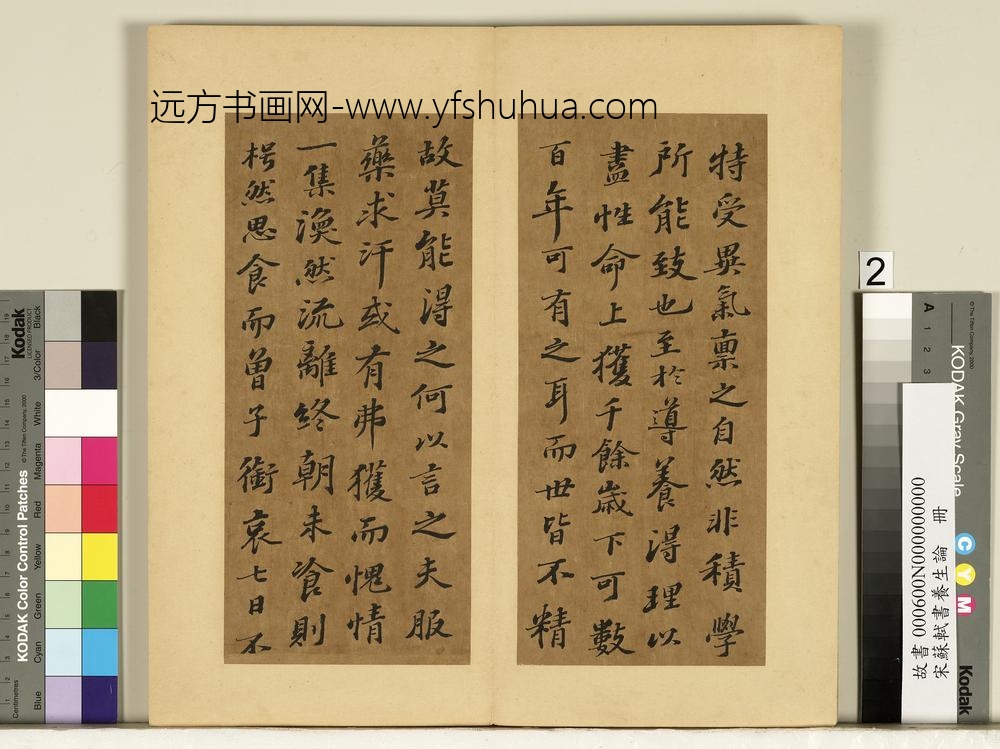 远方书画网-www.yfshuhua.com
特受異氣稟之自然非積學
所能致也至於導養得理以
盡性命上獲千餘歲下可數
百年可有之耳而世皆不精
故莫能得之何以言之夫服
藥求汗或有弗獲而愧情
一集渙然流離終朝未飡則
枵然思食而曾子銜哀七日不
2
故書 000600N000000000
宋蘇軾書養生論 冊
Kodak
LICENSED PRODUCT
KODAK Color Control Patches
© The Tiffen Company, 2000
Centimetres
Blue
Cyan
Green
Yellow
Red
Magenta
White
3/Color
Black
KODAK Gray Scale
© The Tiffen Company, 2000
A 1 2 3
C
Y
M
Kodak